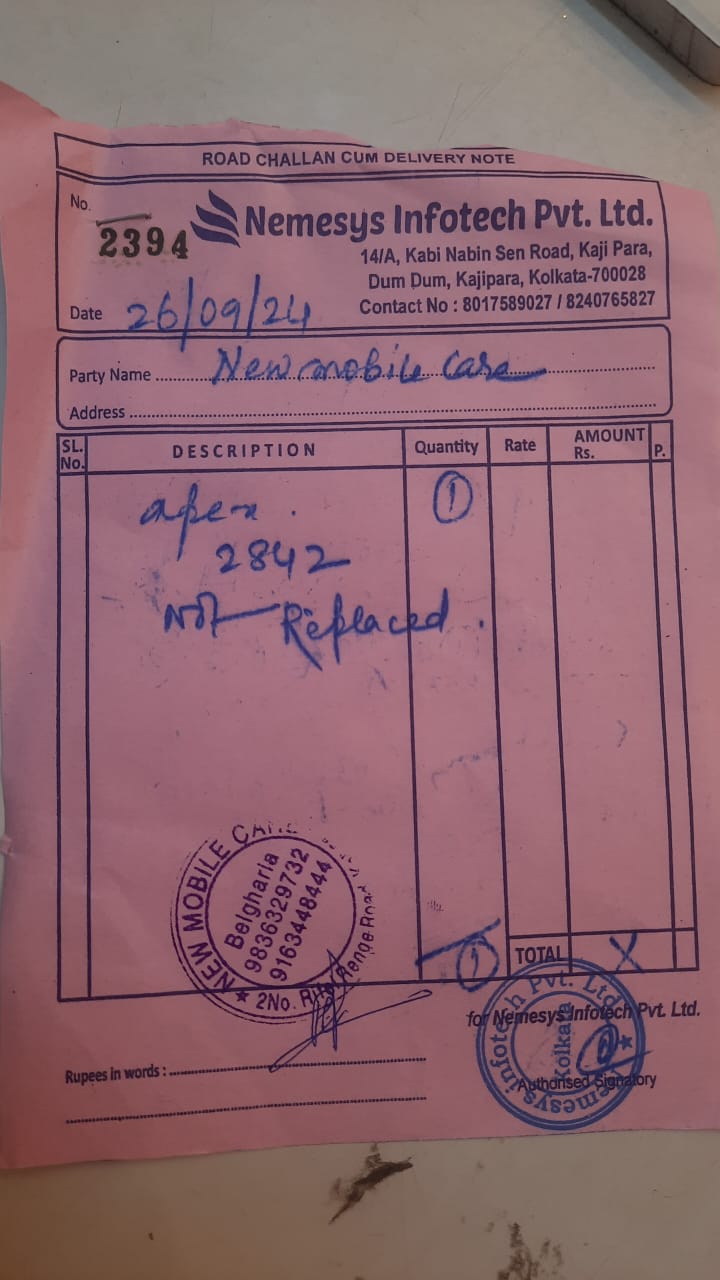 ROAD CHALLAN CUM DELIVERY NOTE
No.
2394
Nemesys Infotech Pvt. Ltd.
14/A, Kabi Nabin Sen Road, Kaji Para,
Dum Dum, Kajipara, Kolkata-700028
Contact No : 8017589027 / 8240765827
Date 26/09/24
Party Name New mobile Care
Address
SL. No. DESCRIPTION Quantity Rate AMOUNT Rs. P.
apex. 1
2842
Not Replaced.
NEW MOBILE CARE
Belgharia
9836329732
9163448444
2No.
1
TOTAL X
for Nemesys Infotech Pvt. Ltd.
Nemesys Infotech Pvt. Ltd.
Kolkata
Rupees in words :
Authorised Signatory